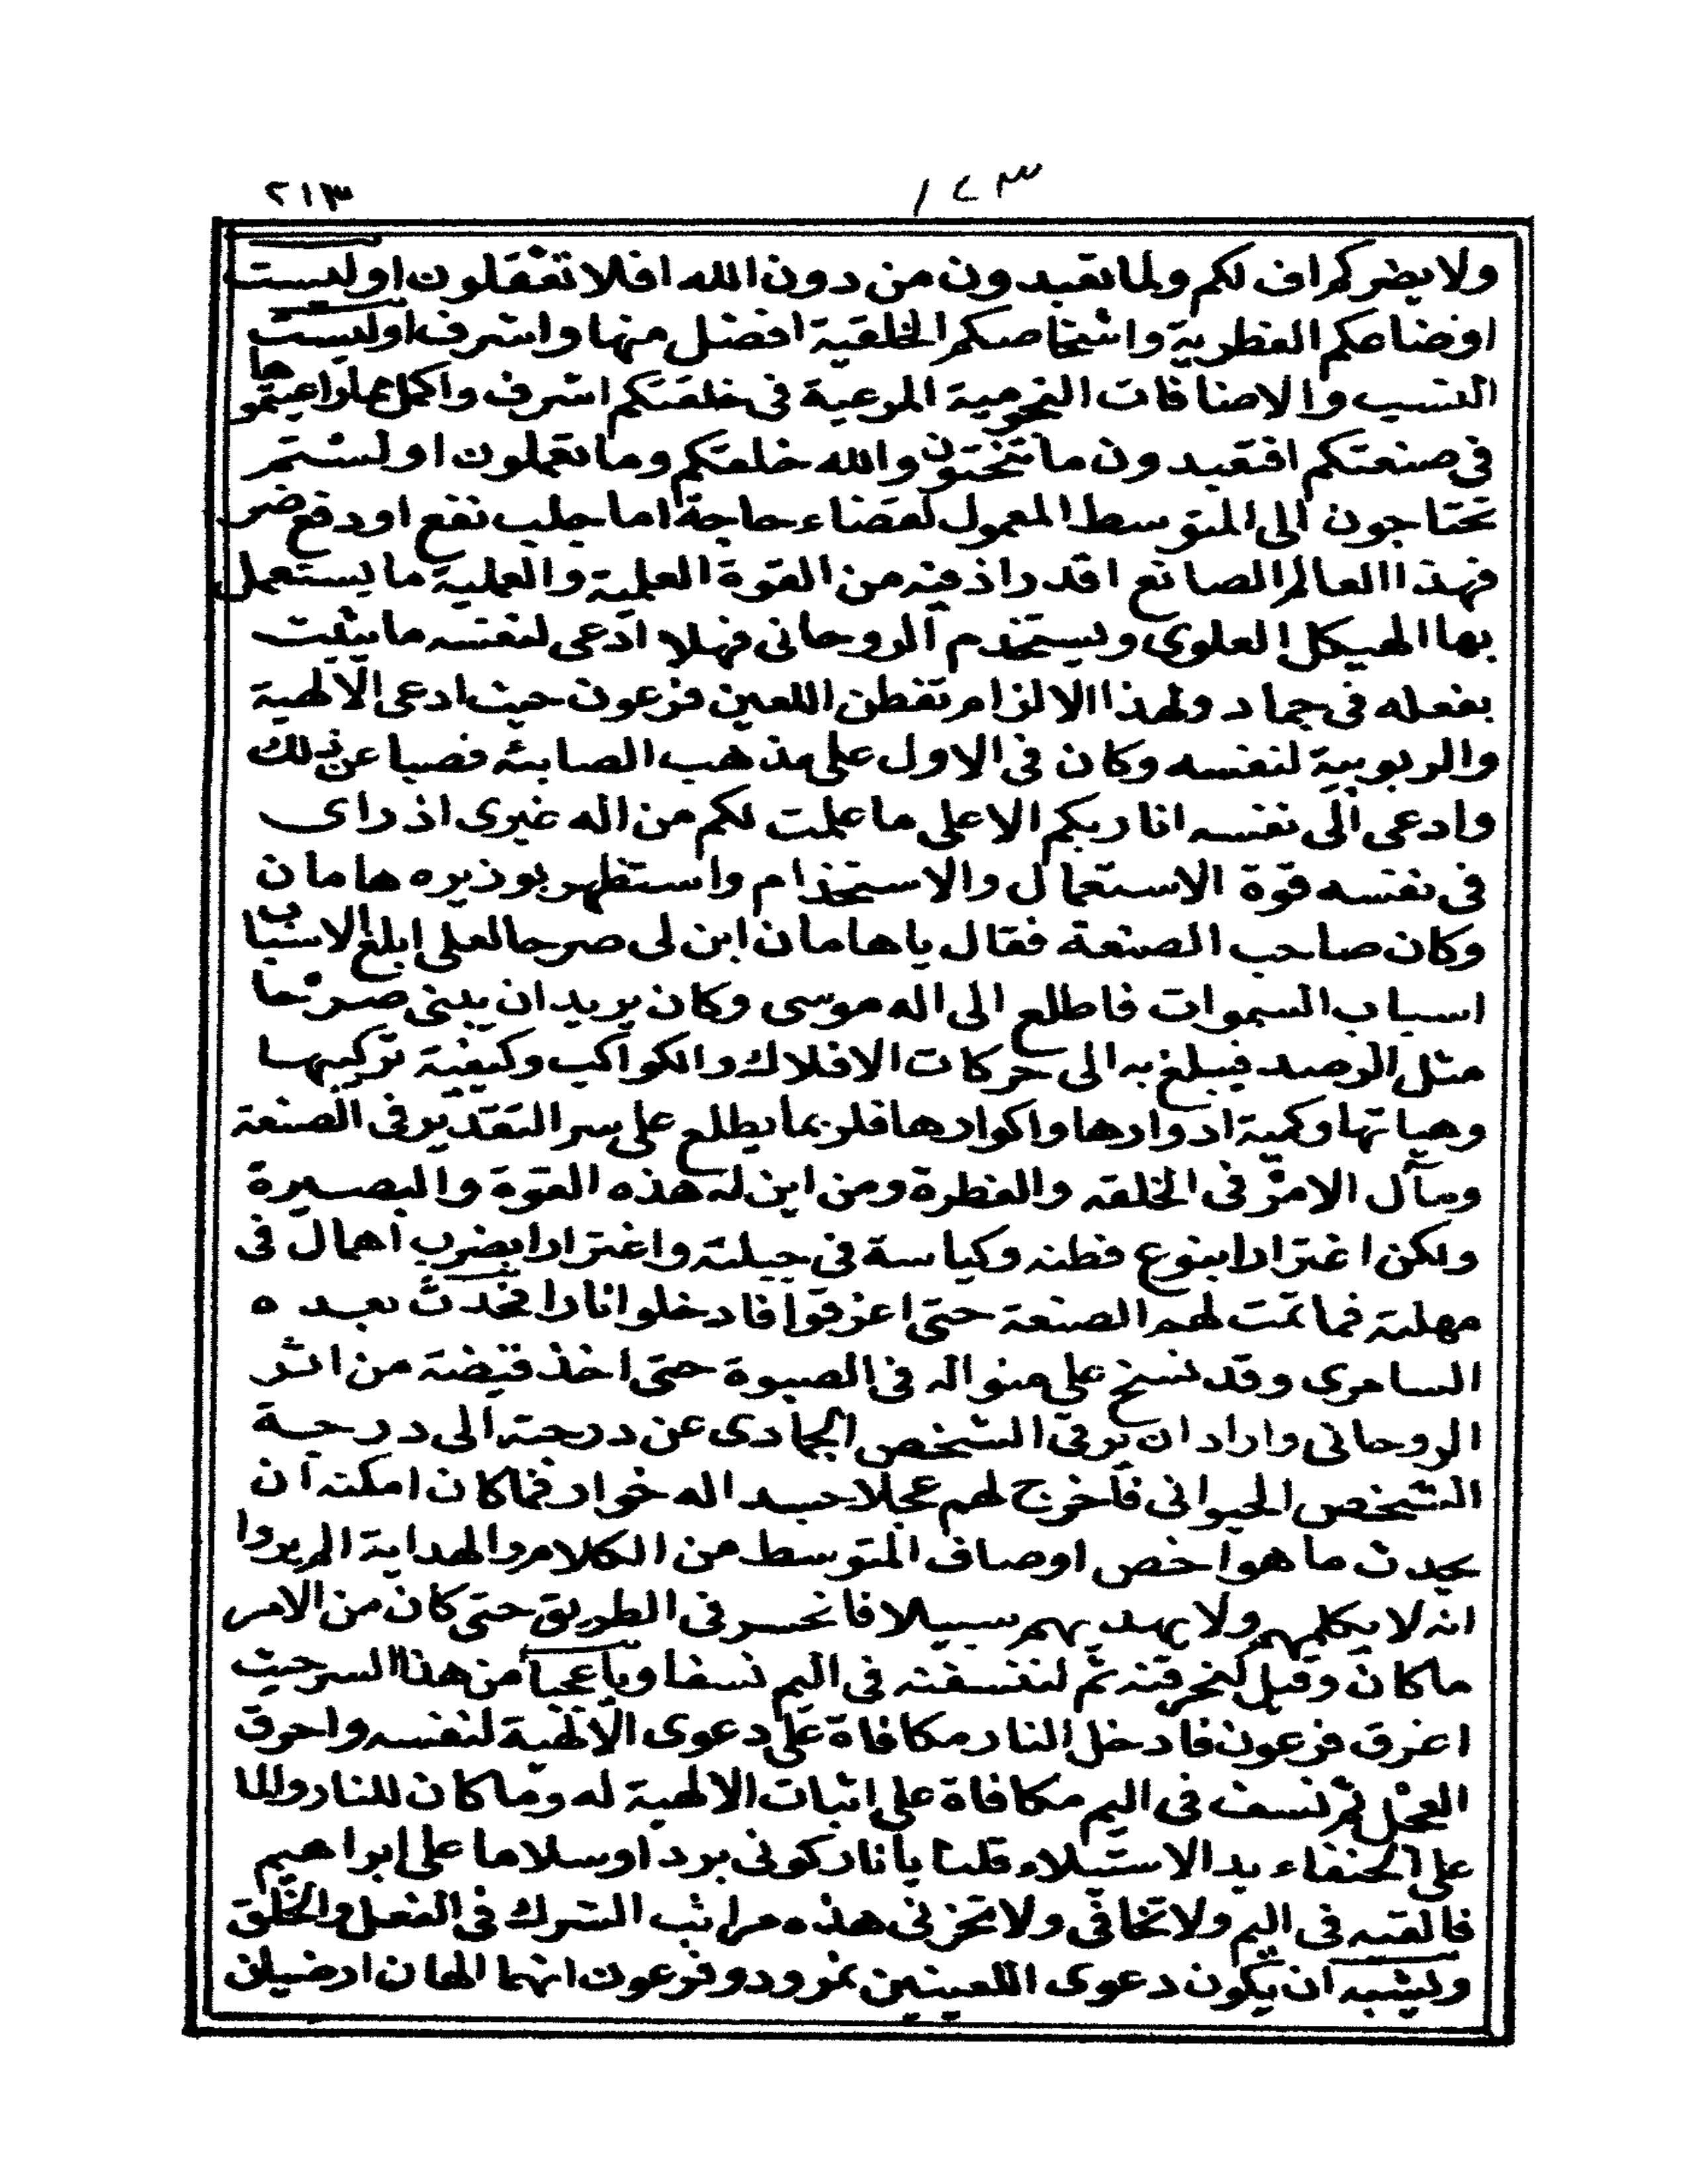 ٢١٣ ١٤٣
ولا يضركم اف لكم ولما تعبدون من دون الله افلا تعقلون اوليست
اوضاعكم الفطرية واشخاصكم الخلقية افضل منها واشرف اوليست
النسب والاضافات النجومية المرعية في خلقتكم اشرف واكمل مما راعيتموها
في صنعتكم افتعبدون ما تنحتون والله خلقكم وما تعملون اولستم
تحتاجون الى المتوسط المعمول لقضاء حاجة اما جلب نفع او دفع ضر
فهذا العالم الصانع اقدر اذ فيه من القوة العلمية والعملية ما يستعمل
بها الهيكل العلوى ويستخدم الروحانى فهلا ادعى لنفسه ما يثبت
بفعله فى جماد ولهذا الالزام تفطن اللعين فرعون حيث ادعى الالهية
والربوبية لنفسه وكان فى الاول على مذهب الصابئه فصبا عن ذلك
وادعى الى نفسه انا ربكم الاعلى ما علمت لكم من اله غيرى اذ راى
فى نفسه قوة الاستعمال والاستخذام واستظهر بوزيره هامان
وكان صاحب الصنعة فقال ياهامان ابن لى صرحا لعلى ابلغ الاسباب
اسباب السموات فاطلع الى اله موسى وكان يريد ان يبنى صرحا
مثل الرصد فيبلغ به الى حركات الافلاك والكواكب وكيفية تركيبها
وهياتها وكمية ادوارها واكوارها فلربما يطلع على سر التقدير فى الصنعة
ومآل الامر فى الخلقه والفطرة ومن اين له هذه القوة والبصيرة
ولكن اغترارا بنوع فطنه وكياسة فى جبلته واغترارا بضرب اهمال فى
مهلته فما تمت لهم الصنعة حتى اغرقوا فادخلوا نارا فحدث بعده
السامرى وقد نسخ على منواله فى الصبوة حتى اخذ قبضة من اثر
الروحانى واراد ان يرقى الشخص الجمادى عن درجته الى درجة
الشخص الحيوانى فاخرج لهم عجلا جسدا له خوار فما كان امكنه ان
يحدث ما هو اخص اوصاف المتوسط من الكلام والهداية الم يروا
انه لا يكلمهم ولا يهديهم سبيلا فانحسر فى الطريق حتى كان من الامر
ما كان وقيل لنحرقنه ثم لننسفنه فى اليم نسفا ويا عجبا من هذا السر حيث
اغرق فرعون فادخل النار مكافاة على دعوى الالهية لنفسه واحرق
العجل ثم نسف فى اليم مكافاة على اثبات الالهية له وما كان للنار والما
على الحنفاء يد الاستيلاء قلنا يا نار كونى بردا وسلاما على ابراهيم
فالقيه فى اليم ولا تخافى ولا تحزنى هذه مراتب الشرك فى الفعل والخلق
ويشبه ان يكون دعوى اللعينين نمرود وفرعون انهما الهان ارضيان